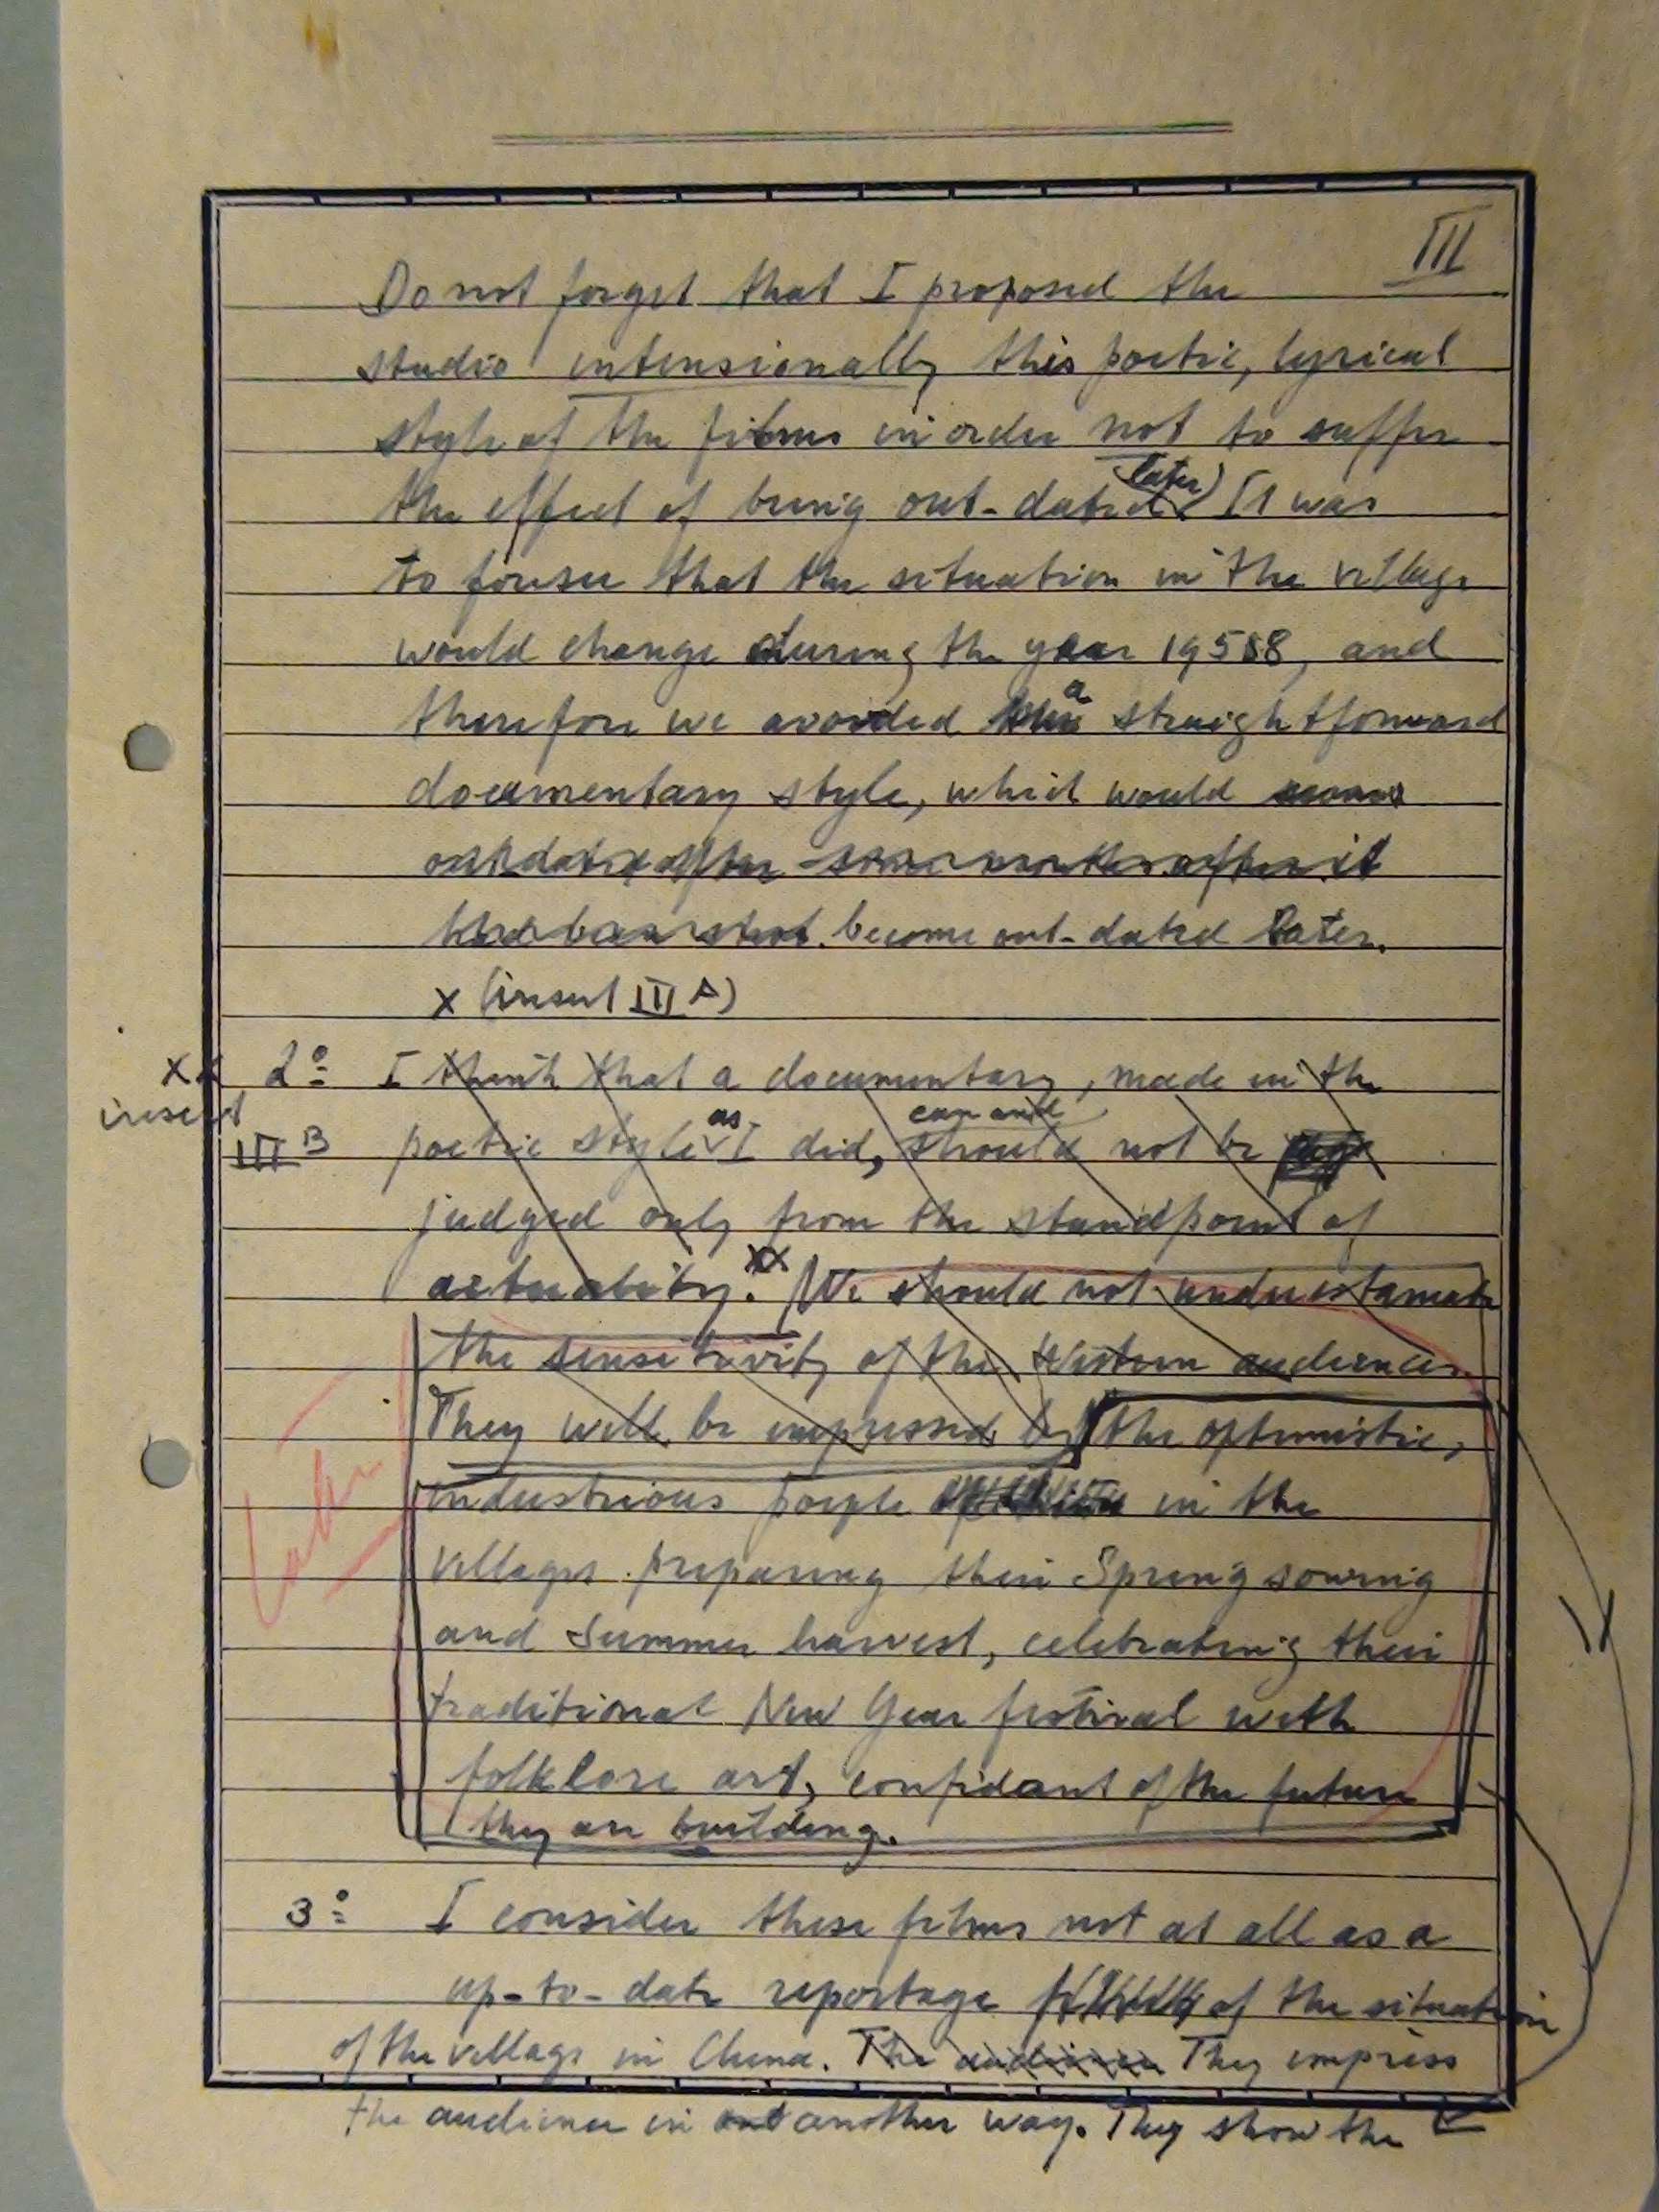 III
Do not forget that I proposed the
studio intensionally this poetic, lyrical
style of the films in order not to suffer
the effect of being out-dated (later) It was
to forsee that the situation in the village
would change during the year 1958, and
therefore we avoided a straightforward
documentary style, which would
outdated after some months after it
become out-dated later.
x (insert III A)
2º I think that a documentary, made in the
xx insert III B
can and
poetic style as I did, should not be
judged only from the standpoint of
actuality. xx We should not underestamate
the sensitivity of the Western audiences.
They will be impressed by the optimistic,
industrious poeple in the
villages preparing their Spring sowing
and Summer harvest, celebrating their
traditional New Year festival with
folklore art, confidant of the future
they are building.
Later
3º I consider these films not at all as a
up-to-date reportage of the situation
of the village in China. The audience They impress
the audience in another way. They show the